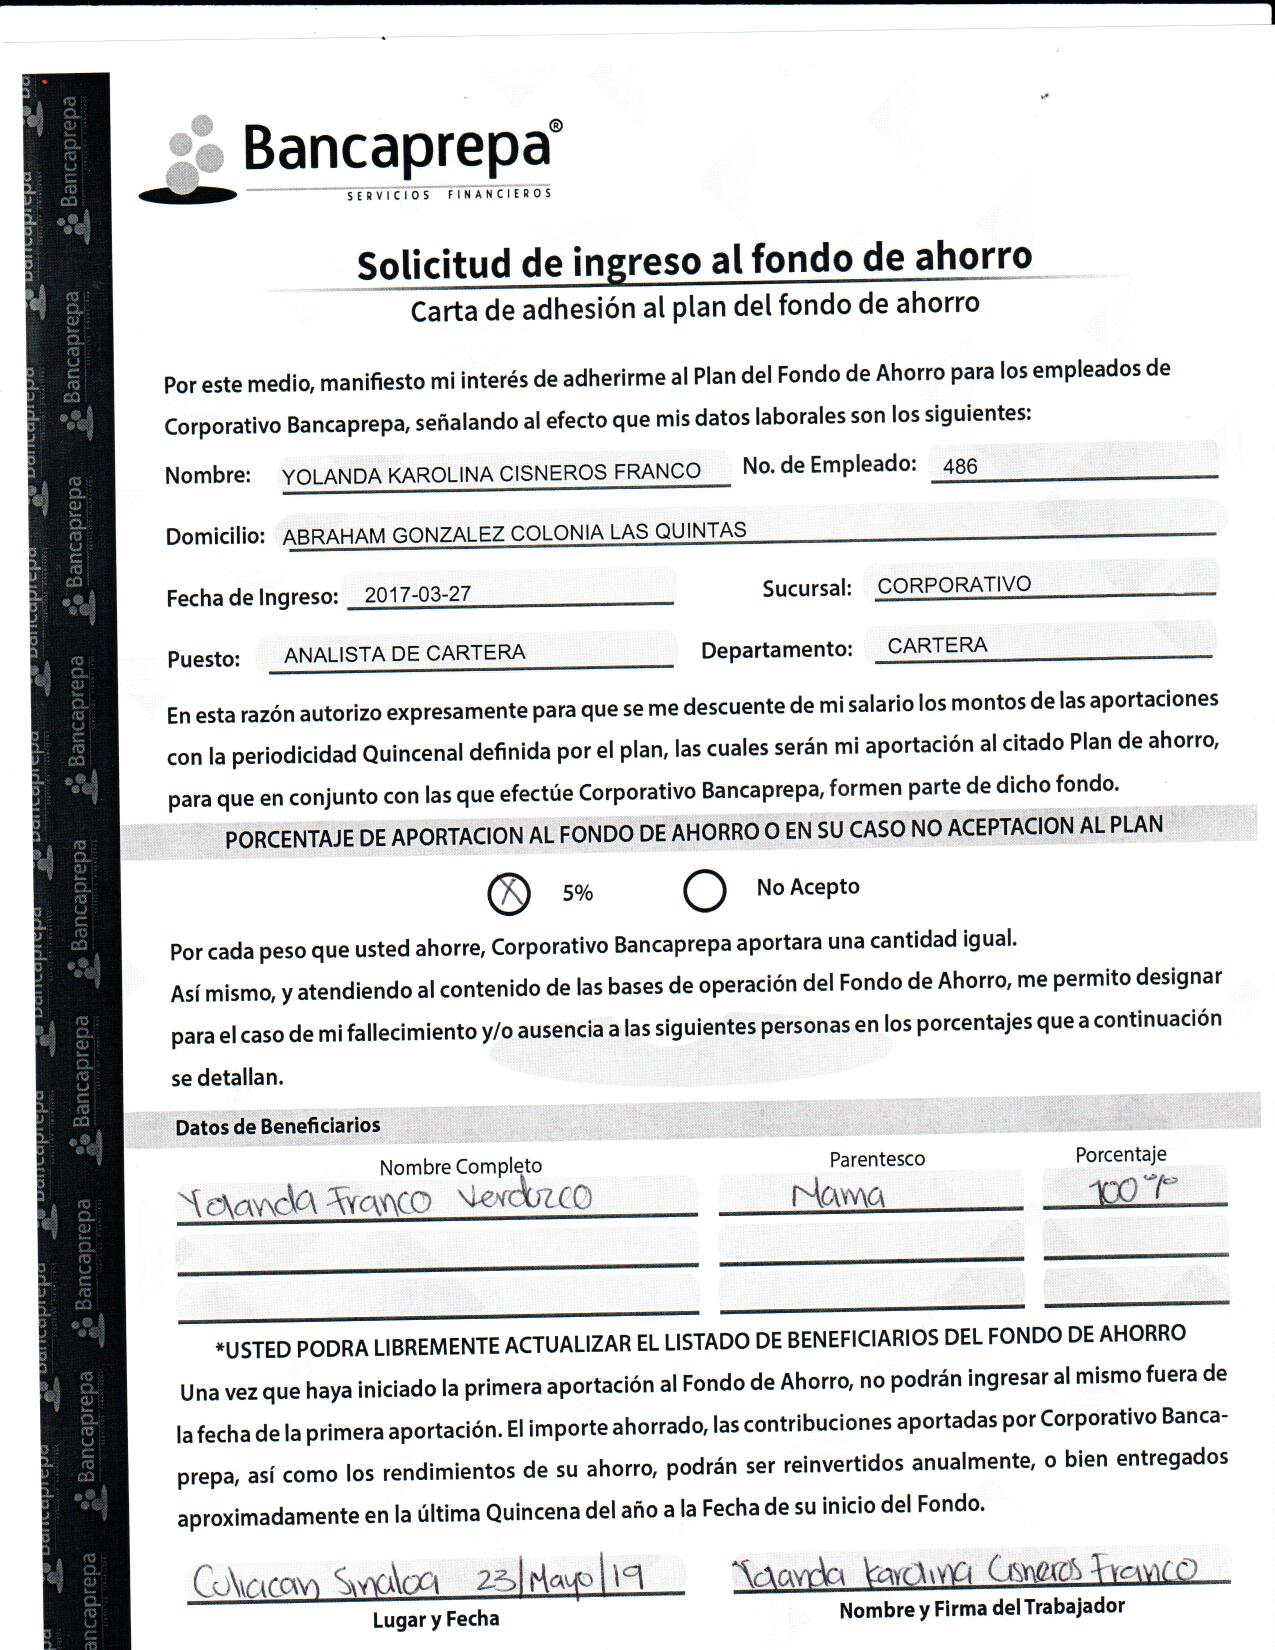 Bancaprepa®
SERVICIOS FINANCIEROS
Solicitud de ingreso al fondo de ahorro
Carta de adhesión al plan del fondo de ahorro
Por este medio, manifiesto mi interés de adherirme al Plan del Fondo de Ahorro para los empleados de
Corporativo Bancaprepa, señalando al efecto que mis datos laborales son los siguientes:
Nombre: YOLANDA KAROLINA CISNEROS FRANCO No. de Empleado: 486
Domicilio: ABRAHAM GONZALEZ COLONIA LAS QUINTAS
Fecha de Ingreso: 2017-03-27 Sucursal: CORPORATIVO
Puesto: ANALISTA DE CARTERA Departamento: CARTERA
En esta razón autorizo expresamente para que se me descuente de mi salario los montos de las aportaciones
con la periodicidad Quincenal definida por el plan, las cuales serán mi aportación al citado Plan de ahorro,
para que en conjunto con las que efectúe Corporativo Bancaprepa, formen parte de dicho fondo.
PORCENTAJE DE APORTACION AL FONDO DE AHORRO O EN SU CASO NO ACEPTACION AL PLAN
X 5% No Acepto
Por cada peso que usted ahorre, Corporativo Bancaprepa aportara una cantidad igual.
Así mismo, y atendiendo al contenido de las bases de operación del Fondo de Ahorro, me permito designar
para el caso de mi fallecimiento y/o ausencia a las siguientes personas en los porcentajes que a continuación
se detallan.
Datos de Beneficiarios
Nombre Completo Parentesco Porcentaje
Yolanda Franco Verduzco Mama 100%
*USTED PODRA LIBREMENTE ACTUALIZAR EL LISTADO DE BENEFICIARIOS DEL FONDO DE AHORRO
Una vez que haya iniciado la primera aportación al Fondo de Ahorro, no podrán ingresar al mismo fuera de
la fecha de la primera aportación. El importe ahorrado, las contribuciones aportadas por Corporativo Banca-
prepa, así como los rendimientos de su ahorro, podrán ser reinvertidos anualmente, o bien entregados
aproximadamente en la última Quincena del año a la Fecha de su inicio del Fondo.
Culiacan Sinaloa 23/Mayo/19 Yolanda Karolina Cisneros Franco
Lugar y Fecha Nombre y Firma del Trabajador